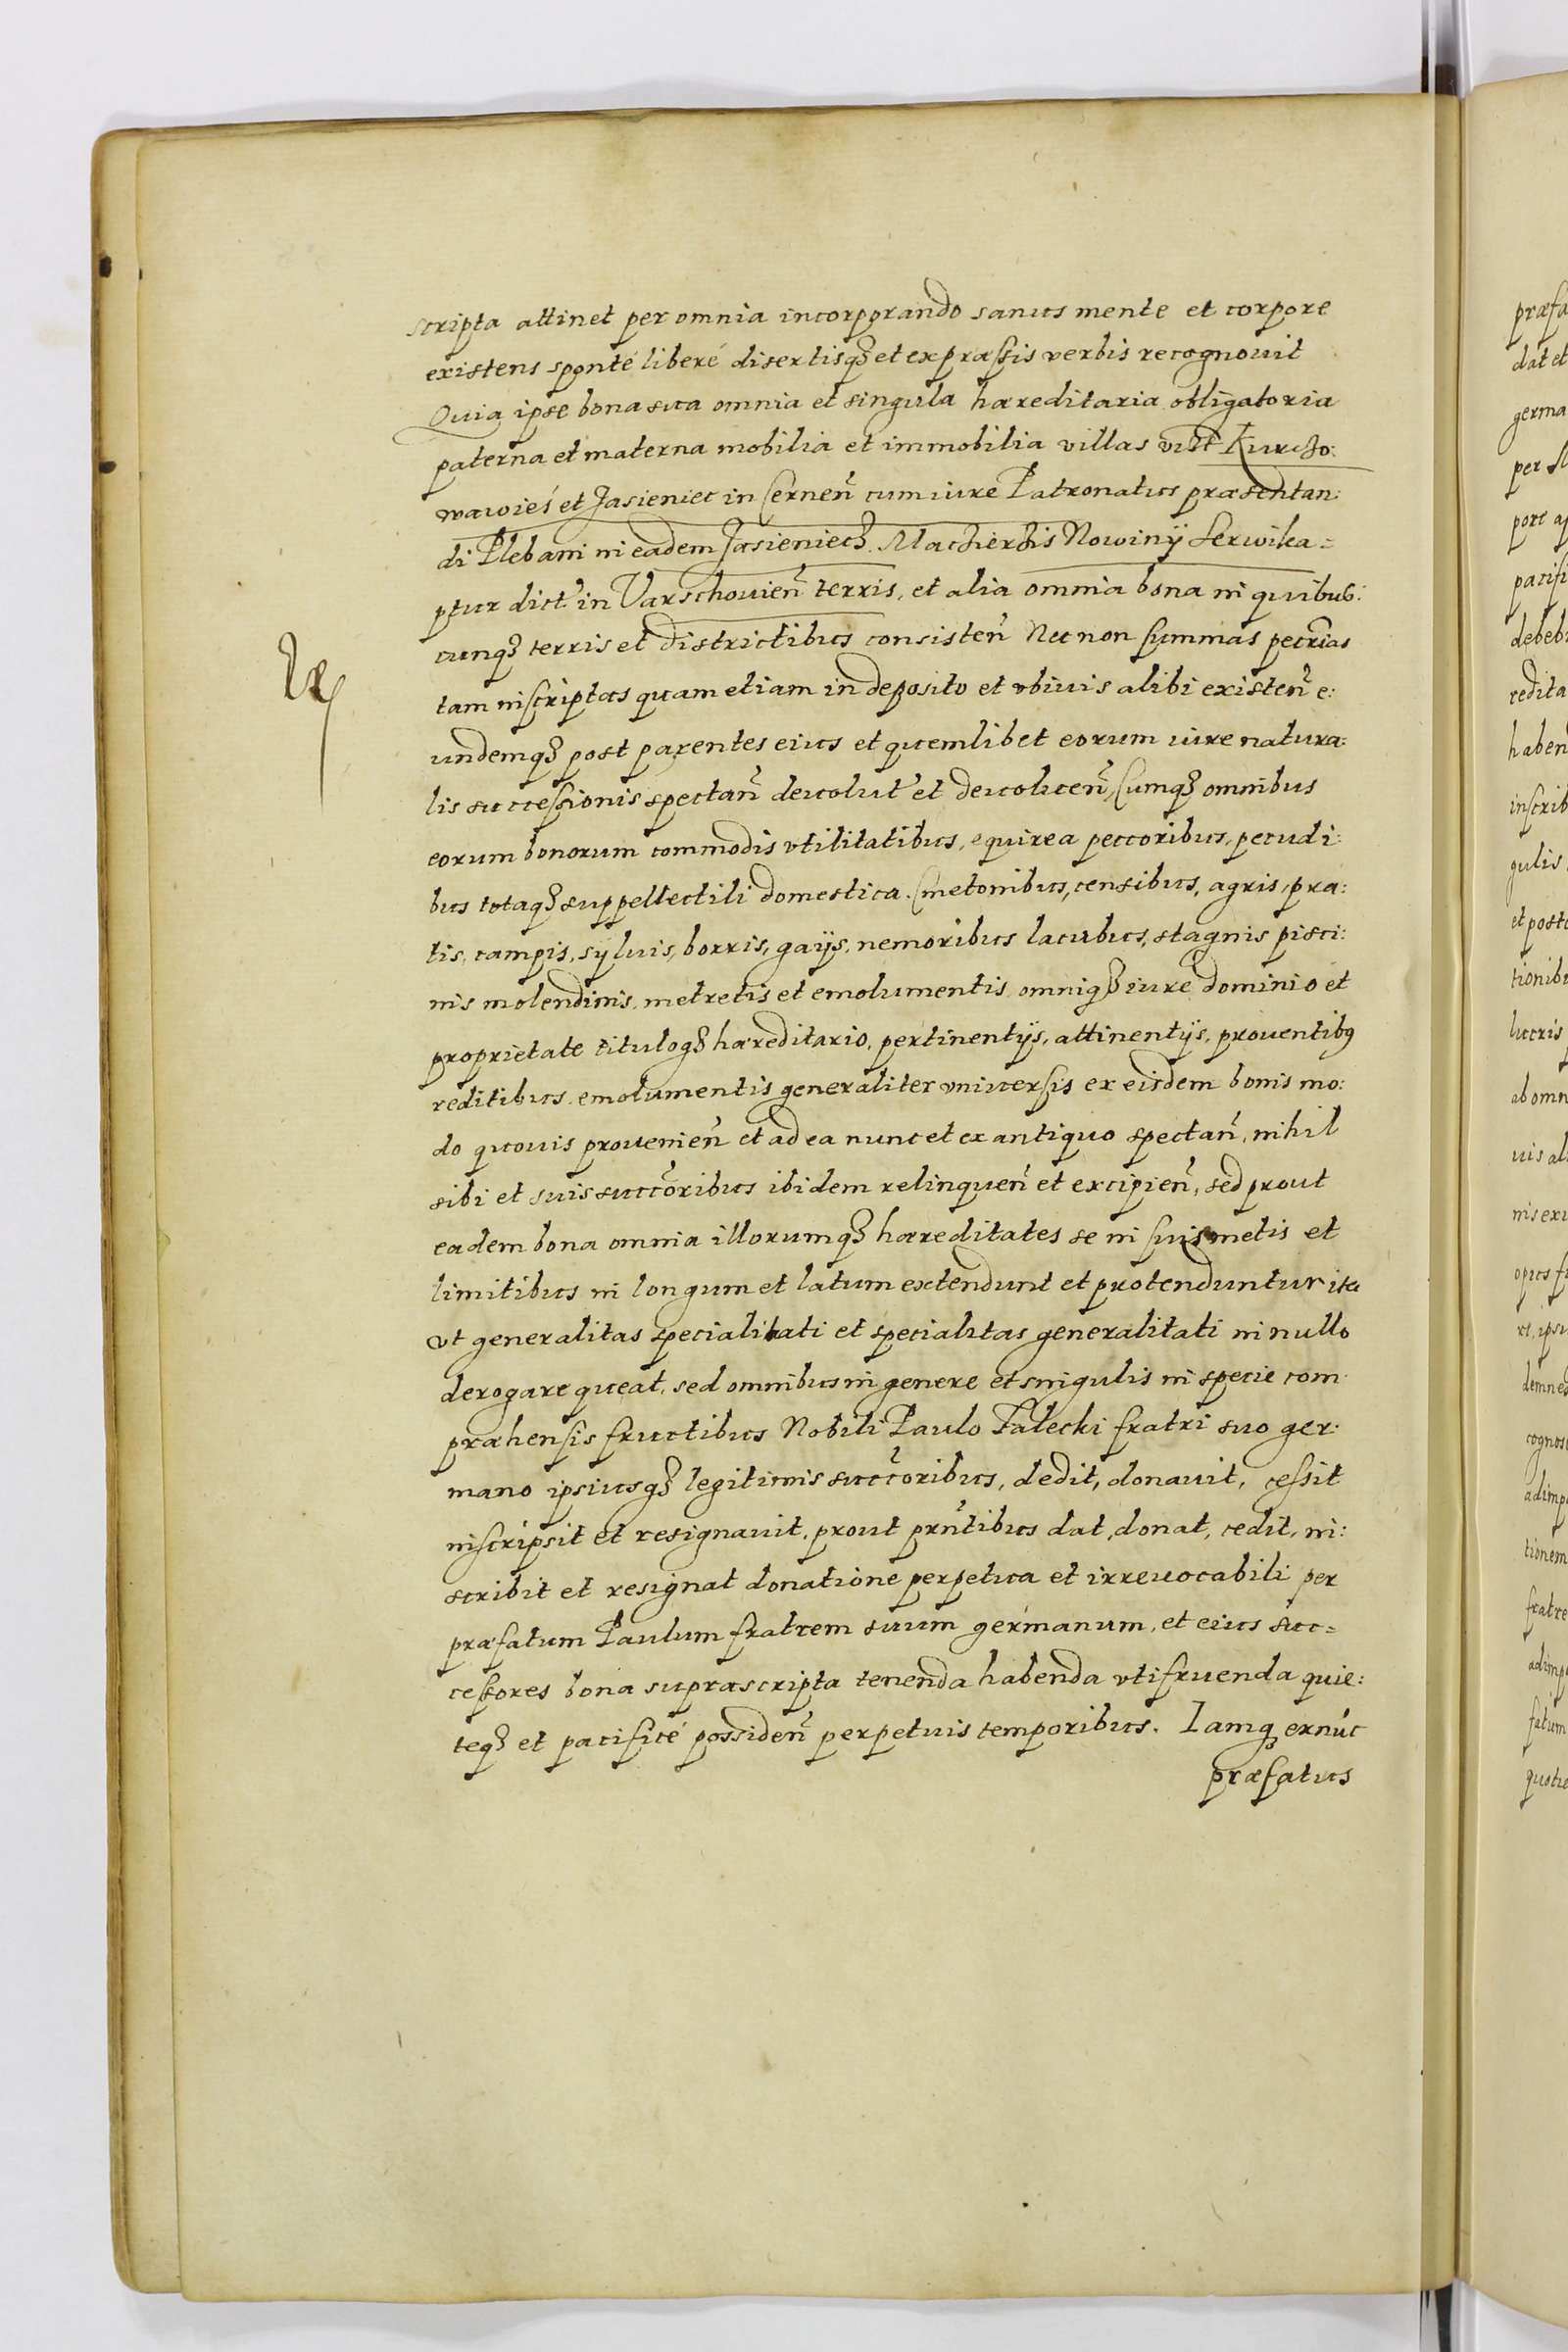 scripta attinet per omnia incorporando sanus mente et corpore
existens sponté liberé disertisq3 et expræssis verbis recognouit
Quia ipse bona sua omnia et singula hæreditaria obligatoria
paterna et materna mobilia et immobilia villas vidt Kurczo:
wawieś et Jasieniec in Cernen̄ cum iure Patronatus præsentan:
di Plebani in eadem Jasieniecz. Machierzis Nowinÿ Serwika=
ptur dict in Varschouien̄ terris, et alia omnia bona in quibus:
cunq3 terris et districtibus consisten̄ Necnon summas pecrias
tam inscriptas quam etiam in deposito et vbiuis alibi existen̄ e:
undemq3 post parentes eius et quemlibet eorum iure natura:
lis successionis spectan̄ deuolut et deuoluen̄, Cumq3 omnibus
eorum bonorum commodis vtilitatibus, equirea peccoribus, pecudi:
bus totaq3 suppellectili domestica. Cmetonibus, censibus, agris, pra:
tis, campis, syluis, borris, gaÿs, nemoribus lacubus, stagnis pisci:
nis molendinis, metretis et emolumentis omniq3 iure dominio et
proprietate tituloq3 hæreditario, pertinentÿs, attinentÿs, prouentibq
reditibus, emolumentis generaliter vniuersis ex eisdem bonis mo:
do quouis prouenien̄ et ad ea nunc et ex antiquo spectan̄, nihil
sibi et suis succoribus ibidem relinquen̄ et excipien̄, sed prout
eadem bona omnia illorumq3 hæreditates se in suis metis et
limitibus in longum et latum extendunt et protenduntur ita
vt generalitas specialitati et specialitas generalitati in nullo
derogare queat, sed omnibus in genere et singulis in specie com
præhensis fructibus Nobili Paulo Falecki fratri suo ger:
mano ipsiusq3 legitimis succoribus, dedit, donauit, cessit
inscripsit et resignauit, prout prntibus dat, donat, cedit, in:
scribit et resignat donatione perpetua et irreuocabili per
præfatum Paulum fratrem suum germanum, et eius suc=
cessores bona suprascripta tenenda habenda vtifruenda quie:
teq3 et pacificé possiden̄ perpetuis temporibus. Iamq3 exnúc
præfatus